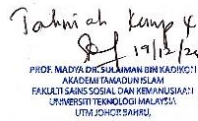 Tahniah
19/12/20
PROF. MADYA DR. SULAIMAN BIN KADIKON
AKADEMI TAMADUN ISLAM
FAKULTI SAINS SOSIAL DAN KEMANUSIAAN
UNIVERSITI TEKNOLOGI MALAYSIA
UTM JOHOR BAHRU,